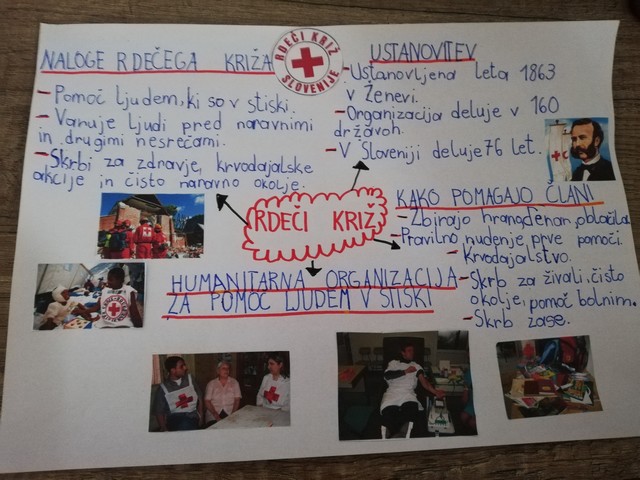 NALOGE RDEČEGA KRIŽA
- Pomoč ljudem, ki so v stiski.
- Varuje ljudi pred naravnimi
in drugimi nesrečami.
- Skrbi za zdravje, krvodajalske
akcije in čisto naravno okolje.
RDEČI KRIŽ
SLOVENIJE
USTANOVITEV
- Ustanovljena leta 1863
v Ženevi.
- Organizacija deluje v 160
državah.
- V Sloveniji deluje 76 let.
RDEČI KRIŽ
KAKO POMAGAJO ČLANI
- Zbirajo hrano, denar, oblačila
- Pravilno nudenje prve pomoči.
- Krvodajalstvo.
- Skrb za živali, čisto
okolje, pomoč bolnim.
- Skrb zase.
HUMANITARNA ORGANIZACIJA
ZA POMOČ LJUDEM V STISKI